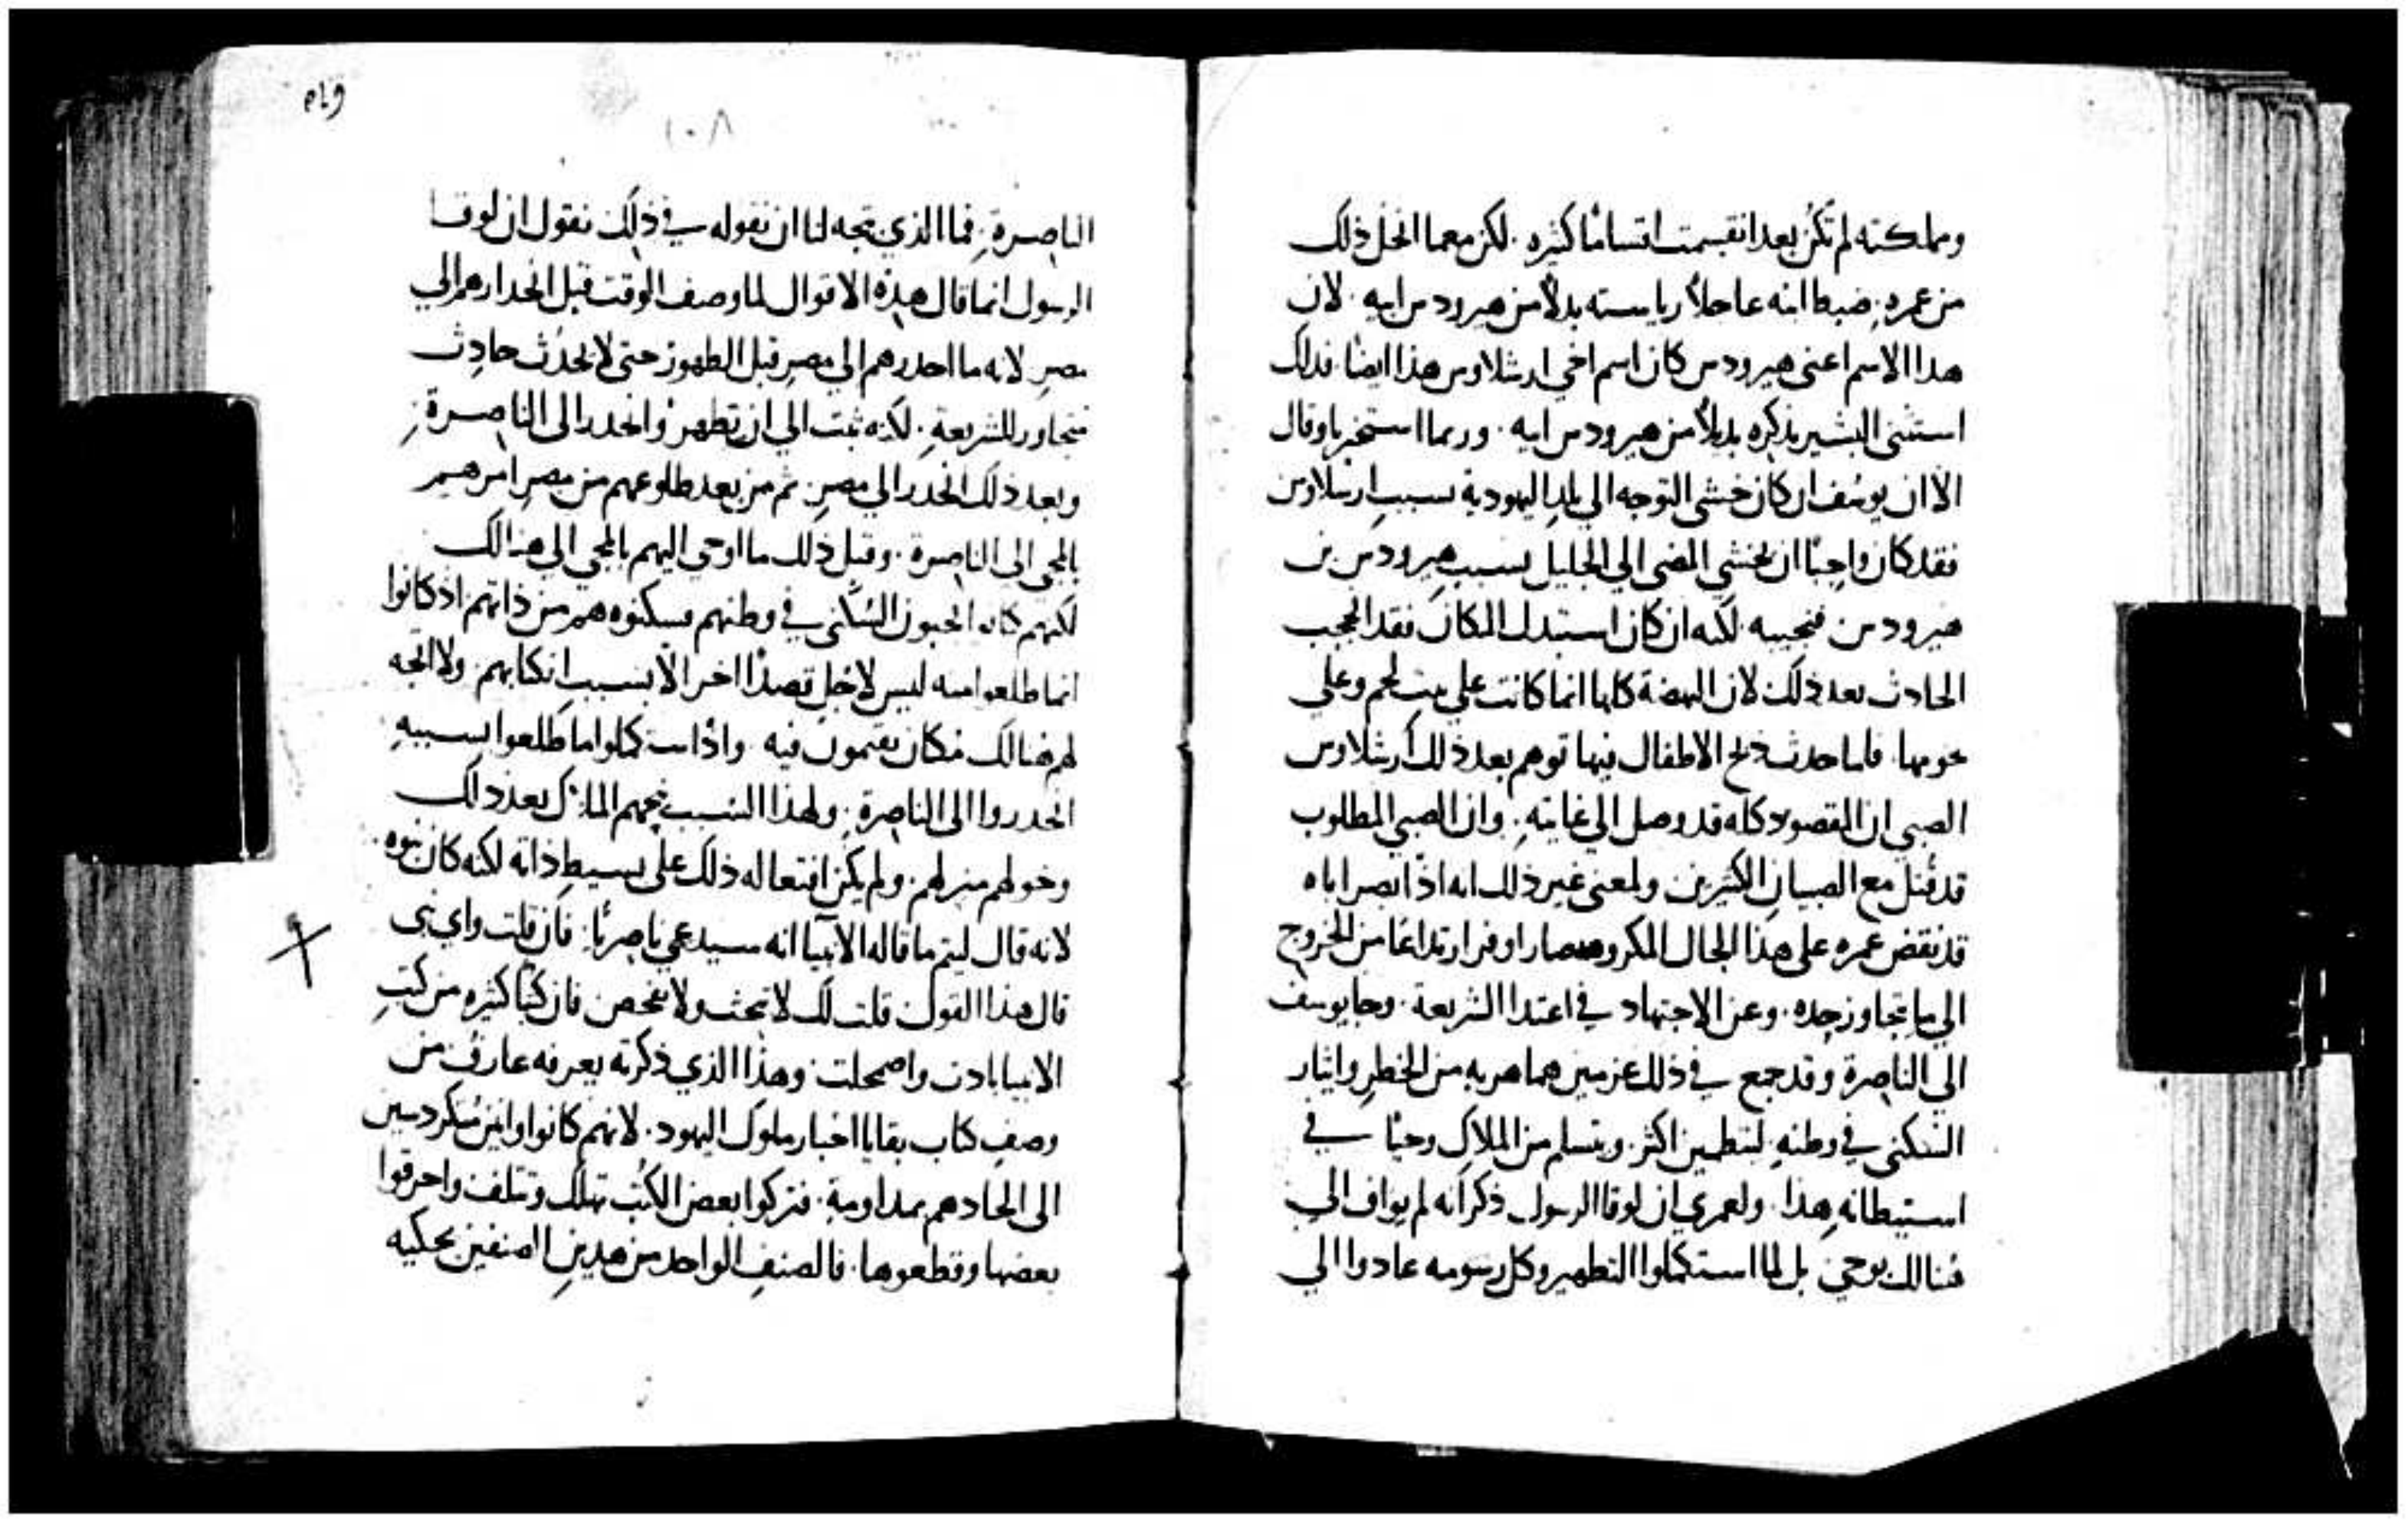 ومملكته لم تكن بعد انقسمت اقسامًا كثيره. لكن معما انحل ذلك
من عمره. ضبط ابنه عاجلاً رياسته بدلاً من هيرودس ابيه. لان
هدا الاسم اعنى هيرودس كان اسم اخي ارشلاوس هذا ايضًا. فدلك
استثنى البشير بذكره بديلاً من هيرودس ابيه. وربما استخبرنا وقال
الا ان يوسف ان كان خشى التوجه الي بلد اليهودية بسبب ارشلاوس
فقد كان واجبًا ان يخشي المضى الي الجليل بسبب هيرودس بن
هيرودس. فنجيبه. لكنه ان كان استبدل المكان فقد انحجب
الحادث بعد ذلك لان النهضة كلها انما كانت علي بيت لحم وعلي
نخومها. فلما حدث ذبح الاطفال فيها توهم بعد ذلك ارشلاوس
الصبي ان المقصود كله قد وصل الي غايته. وان الصبي المطلوب
قد قتل مع الصبيان الكثيرين. ولمعنى غير ذلك انه اذا ابصر اباه
قد نقض عمره على هذا الحال المكروهه صار اوفر ارتداعًا من الخروج
الي ما يتجاوز حده. وعن الاجتهاد في اعتدا الشريعة. وجا يوسف
الي الناصرة وقد جمع في ذلك عزمين هما هربه من الخطر وايثار
السكنى في وطنه. ليتطمين اكثر. ويتسلم من الملاك وحيًا في
استيطانه هذا. ولعمري ان لوقا الرسول ذكر انه لم يواف الي
هنالك بوحي بل لما استكملوا التطهير وكل رسومه عادوا الي
١٠٨
الناصرة. فما الذي يتجه لنا ان نقوله في ذلك نقول ان لوقا
الرسول انما قال هذه الاقوال لما وصف الوقت قبل انحدارهم الي
مصر لانه ما احدرهم الي مصر قبل الطهور حتى لا يحدث حادث
متجاوز للشريعة. لكنه ثبت الي ان تطهر وانحدر الى الناصرة.
وبعد ذلك انحدر الي مصر. ثم من بعد طلوعهم من مصر امرهم
بالمجي الى الناصرة. وقبل ذلك ما اوحي اليهم بالمجي الي هنالك
لكنهم كانوا يحبون السكنى في وطنهم فسكنوه هم من ذاتهم اذ كانوا
انما طلعوا منه ليس لاجل قصدًا اخر الا بسبب انكتابهم. ولا اتجه
لهم هنالك مكان يقيمون فيه. واذا ستكملوا ما طلعوا بسببه
انحدروا الى الناصرة. ولهذا السبب يجيهم الملاك بعد دلك
وخولهم منزلهم. ولم يكن افتعاله ذلك على بسيط ذاته لكنه كان بنوه.
لانه قال ليتم ما قاله الانبيا انه سيدعي ناصريًا. فان قلت واي نبى
قال هذا القول قلت لك لا تبحث ولا تفحص. فان كتبًا كثيره من كتب
الانبيا بادت واضمحلت. وهذا الذي ذكرته يعرفه عارف من
وصف كتاب بقايا اخبار ملوك اليهود. لانهم كانوا وانين منكردسين
الى الحادهم بمداومة. فتركوا بعض الكتب تهلك وتتلف واحرقوا
بعضها وقطعوها. فالصنف الواحد من هدين الصنفين يحكيه